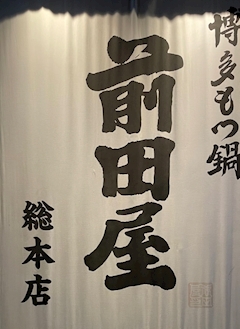 博多もつ鍋
前田屋
総本店